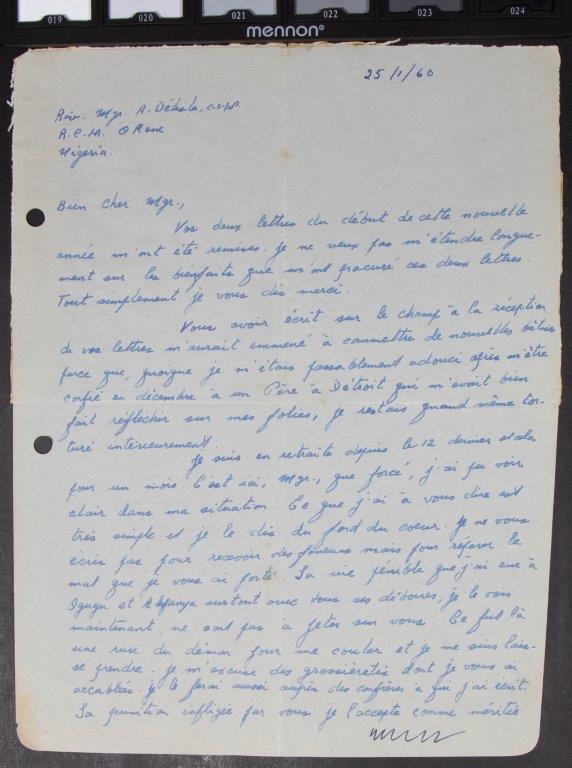 019 020 021 022 023 024
mennon®
25/1/60
Rév. Mgr. A. Délisle, c.s.sp.
R.C.M. Okene
Nigeria.
Bien cher Mgr.,
Vos deux lettres du début de cette nouvelle
année m'ont été remises. Je ne veux pas m'étendre longue-
ment sur les bienfaits que m'ont procuré ces deux lettres.
Tout simplement je vous dis merci.
Vous avoir écrit sur le champ à la réception
de vos lettres m'aurait emmené à commettre de nouvelles bêtises
parce que, quoique je m'étais passablement adouci après m'être
confié en décembre à un Père à Détroit qui m'avait bien
fait réfléchir sur mes folies, je restais quand même tor-
turé intérieurement.
Je suis en retraite depuis le 12 dernier et cela
pour un mois. C'est ici, Mgr., que forcé, j'ai pu voir
clair dans ma situation. Ce que j'ai à vous dire est
très simple et je le dis du fond du coeur. Je ne vous
écris pas pour recevoir des faveurs mais pour réparer le
mal que je vous ai porté. La vie pénible que j'ai eue à
Ogugu et surtout avec tous ses déboires, je le vois
maintenant, ne sont pas à jeter sur vous. Ce fut là
une ruse du démon pour me couler et je me suis lais-
sé prendre. Je m'excuse des grossièretés dont je vous ai
accablées. Je le ferai aussi auprès des confrères à qui j'ai écrit.
La punition infligée par vous je l'accepte comme méritée